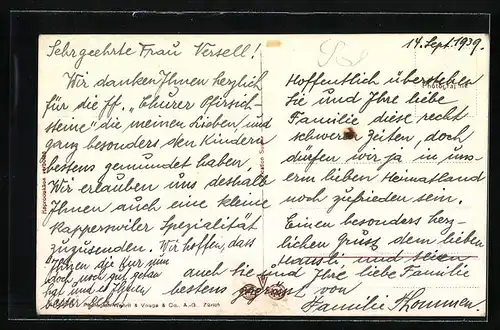 14. Sept. 1939.
Sehrgeehrte Frau Versell!
Wir danken Ihnen herzlich
für die ff. "Churer Pfirsich-
steine" die meinen Lieben, und
ganz besonders den Kindern
bestens gemundet haben.
Wir erlauben uns deshalb
Ihnen auch eine kleine
Rapperswiler Spezialität
zuzusenden. Wir hoffen, dass
Ihnen die Kur nun
doch noch gut getan
hat und es Ihnen
besser geht
Hoffentlich überstehen
Sie und Ihre liebe
Familie diese recht
schweren Zeiten, doch
dürfen wir ja in uns-
erm lieben Heimatland
noch zufrieden sein.
Einen besonders herz-
lichen Gruss dem lieben
Hansli und seien
auch Sie und Ihre liebe Familie
bestens gegrüsst von
Familie Thommen.
Reproduktion verboten
& Co., A.-G. Zürich